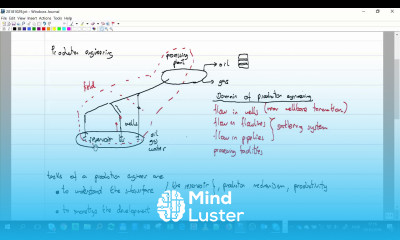 20181029.jnt - Windows Journal
File Edit View Insert Actions Tools Help
Production engineering
processing
plant
oil
gas
field
wells
reservoir
oil
gas
water
Domain of production engineering
flow in wells (near wellbore formation)
flow in flowlines
flow in pipelines
gathering system
processing facilities
tasks of a production engineer are
to understand the structure / the reservoir, production mechanism, productivity
to the development
Mind
Luster